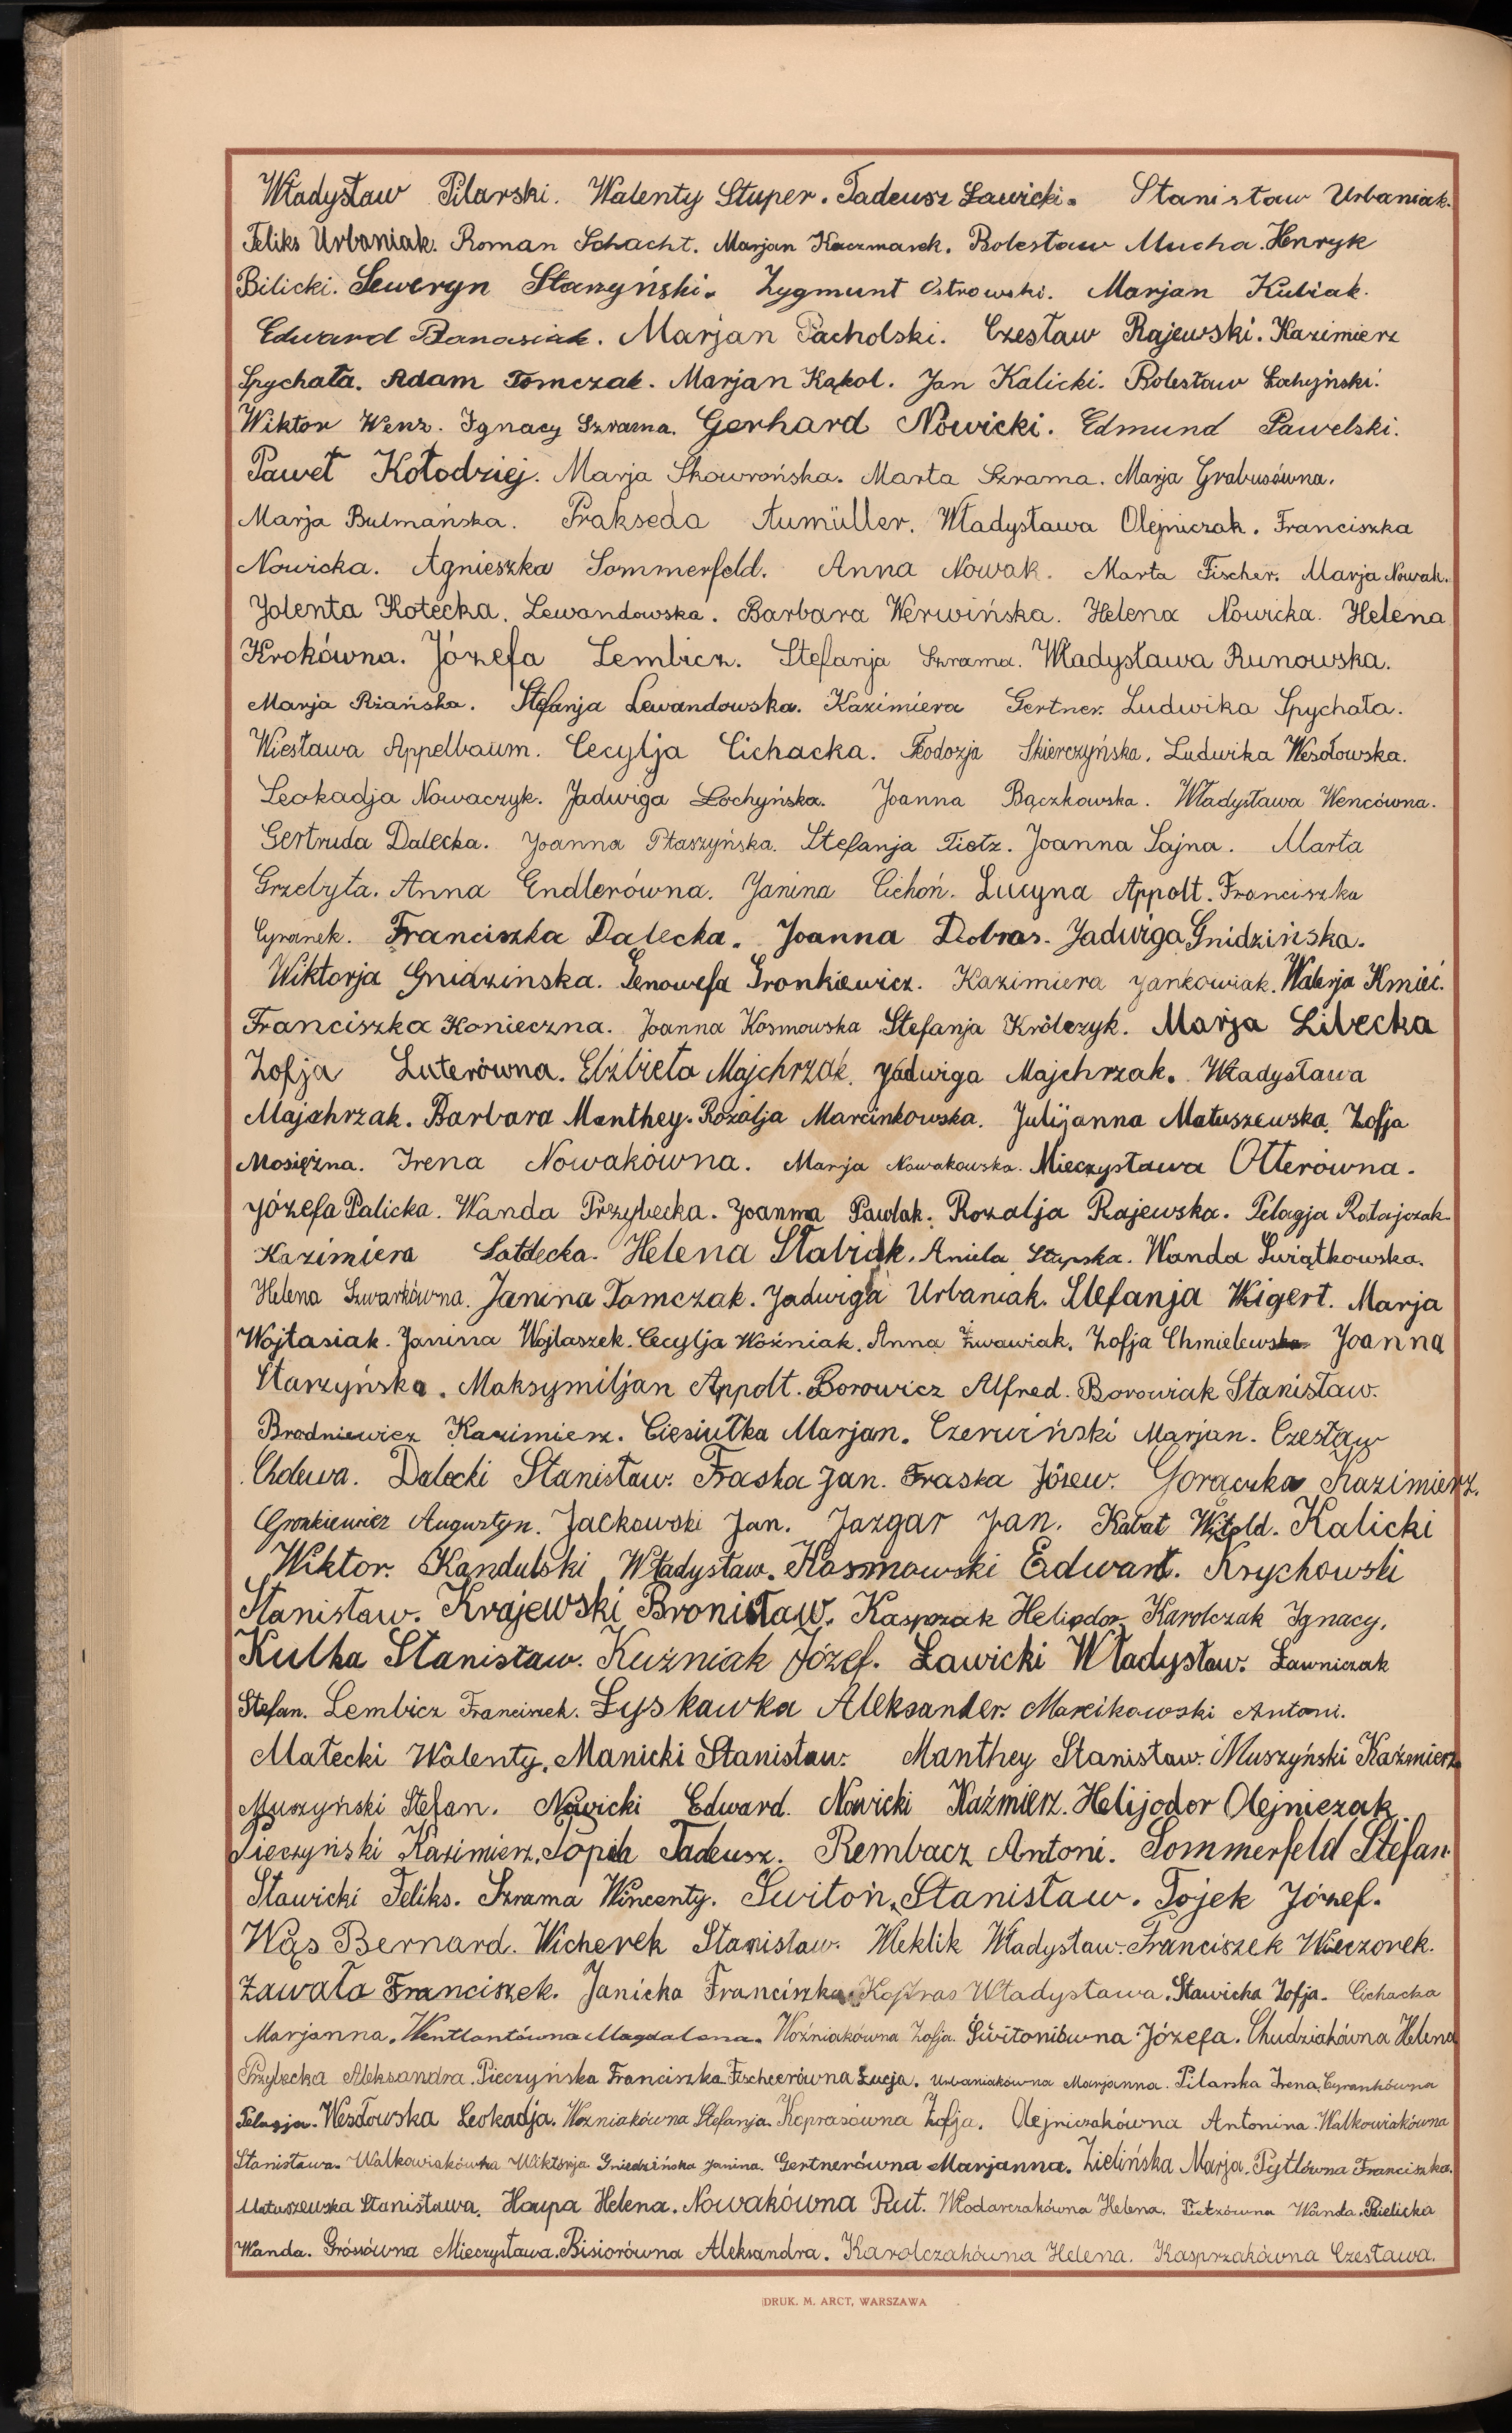 Władysław Pilarski. Walenty Stuper. Tadeusz Ławicki. Stanisław Urbaniak.
Feliks Urbaniak. Roman Schacht. Marjan Kaczmarek. Bolesław Mucha. Henryk
Bilicki. Seweryn Starzyński. Zygmunt Ostrowski. Marjan Kubiak.
Edward Banasiak. Marjan Pacholski. Czesław Rajewski. Kazimierz
Spychała. Adam Tomczak. Marjan Kąkol. Jan Kalicki. Bolesław Łochyński.
Wiktor Wenz. Ignacy Szrama. Gerhard Nowicki. Edmund Pawelski.
Paweł Kołodziej. Marja Skowrońska. Marta Szrama. Marja Grabusówna.
Marja Bulmańska. Prakseda Aumüller. Władysława Olejniczak. Franciszka
Nowicka. Agnieszka Sommerfeld. Anna Nowak. Marta Fischer. Marja Nowak.
Jolenta Kotecka. Lewandowska. Barbara Werwińska. Helena Nowicka. Helena
Krokówna. Józefa Lembicz. Stefanja Szrama. Władysława Runowska.
Marja Rżańska. Stefanja Lewandowska. Kazimiera Gertner. Ludwika Spychała.
Wiesława Appelbaum. Cecylja Cichacka. Feodozja Skierczyńska. Ludwika Wesołowska.
Leokadja Nowaczyk. Jadwiga Łochyńska. Joanna Bączkowska. Władysława Wencówna.
Gertruda Dalecka. Joanna Ptaszyńska. Stefanja Tietz. Joanna Sajna. Marta
Grzebyta. Anna Endlerówna. Janina Cichoń. Lucyna Appolt. Franciszka
Cyranek. Franciszka Dalecka. Joanna Dobras. Jadwiga Gnidzińska.
Wiktorja Gnidzinska. Genowefa Gronkiewicz. Kazimiera Jankowiak. Walerja Kmieć.
Franciszka Konieczna. Joanna Kosmowska Stefanja Królczyk. Marja Libecka
Zofja Luterówna. Elżbieta Majchrzak. Jadwiga Majchrzak. Władysława
Majchrzak. Barbara Manthey. Rozalja Marcinkowska. Julijanna Matuszewska. Zofja
Mosiężna. Irena Nowakówna. Marja Nowakowska. Mieczysława Otterówna.
Józefa Palicka. Wanda Przybecka. Joanna Pawlak. Rozalja Rajewska. Pelagja Ratajczak.
Kazimiera Sałdecka. Helena Stabiak. Aniela Stupska. Wanda Świątkowska.
Helena Szwarkówna. Janina Tomczak. Jadwiga Urbaniak. Stefanja Wigert. Marja
Wojtasiak. Janina Wojtaszek. Cecylja Woźniak. Anna Żwawiak. Zofja Chmielewska Joanna
Starzyńska. Maksymiljan Appolt. Borowicz Alfred. Borowiak Stanisław.
Brodniewicz Kazimierz. Ciesiułka Marjan. Czerwiński Marjan. Czesław
Cholewa. Dalecki Stanisław. Fraska Jan. Fraska Józew. Gorączka Kazimierz.
Gronkiewicz Augustyn. Jackowski Jan. Jazgar Jan. Kabat Witold. Kalicki
Wiktor. Kandulski Władysław. Kosmowski Edwart. Krychowski
Stanisław. Krajewski Bronisław. Kasprzak Heliodor. Karolczak Ignacy.
Kulka Stanisław. Kuźniak Józef. Ławicki Władysław. Ławniczak
Stefan. Lembicz Franciszek. Łyskawka Aleksander. Marcikowski Antoni.
Małecki Walenty. Manicki Stanisław. Manthey Stanisław. Muszyński Kaźmierz
Muszyński Stefan. Nowicki Edward. Nowicki Kaźmierz. Helijodor Olejniczak.
Pieczyński Kazimierz. Tadeusz. Rembacz Antoni. Sommerfeld Stefan.
Stawicki Feliks. Szrama Wincenty. Switoń Stanisław. Tojek Józef.
Wąs Bernard. Wicherek Stanisław. Weklik Władysław. Franciszek Wieczorek.
Zawała Franciszek. Janicka Franciszka Kopras Władysława. Stawicka Zofja. Cichacka
Marjanna. Wentlantówna Magdalena. Woźniakówna Zofja. Świtoniówna Józefa. Chudziakówna Helena
Przybecka Aleksandra. Pieczyńska Franciszka. Fischerówna Łucja. Urbaniakówna Marjanna. Pilarska Irena. Cyrankówna
Pelagja. Wesołowska Leokadja. Woźniakówna Stefanja. Koprasówna Zofja. Olejniczakówna Antonina. Walkowiakówna
Stanisława. Walkowiakówna Wiktorja. Gniedzińska Janina. Gertnerówna Marjanna. Zielińska Marja. Pytlówna Franciszka.
Matuszewska Stanisława. Haupa Helena. Nowakówna Rut. Włodarczakówna Helena. Tietzówna Wanda. Bielicka
Wanda. Grósówna Mieczysława. Bisiorówna Aleksandra. Karolczakówna Helena. Kasprzakówna Czesława.
DRUK. M. ARCT, WARSZAWA